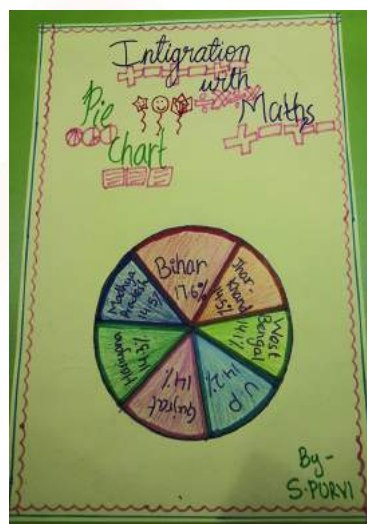 Intigration
with
Maths
Pie
Chart
Bihar
17.6%
Jhar-
Khand
14.5%
West
Bengal
14.1%
U.P
14.2%
Gujrat
14%
Haryana
Madhya
Pradesh
14.5%
By-
S.PURVI